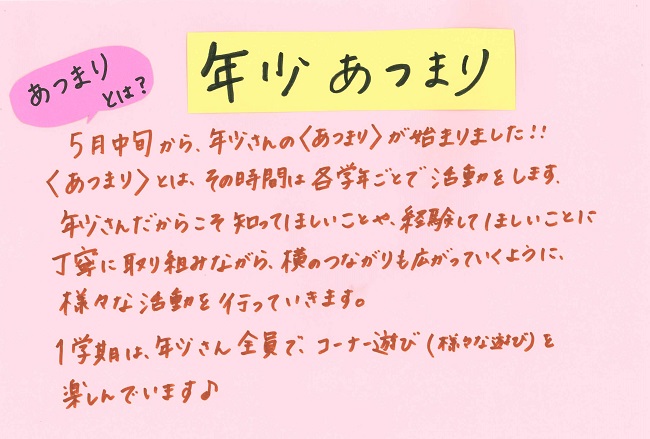 年少 あつまり
あつまり
とは？
5月中旬から、年少さんの〈あつまり〉が始まりました!!
〈あつまり〉とは、その時間は各学年ごとで活動をします。
年少さんだからこそ知ってほしいことや、経験してほしいことに
丁寧に取り組みながら、横のつながりも広がっていくように、
様々な活動を行っていきます。
1学期は、年少さん全員で、コーナー遊び(様々な遊び)を
楽しんでいます♪